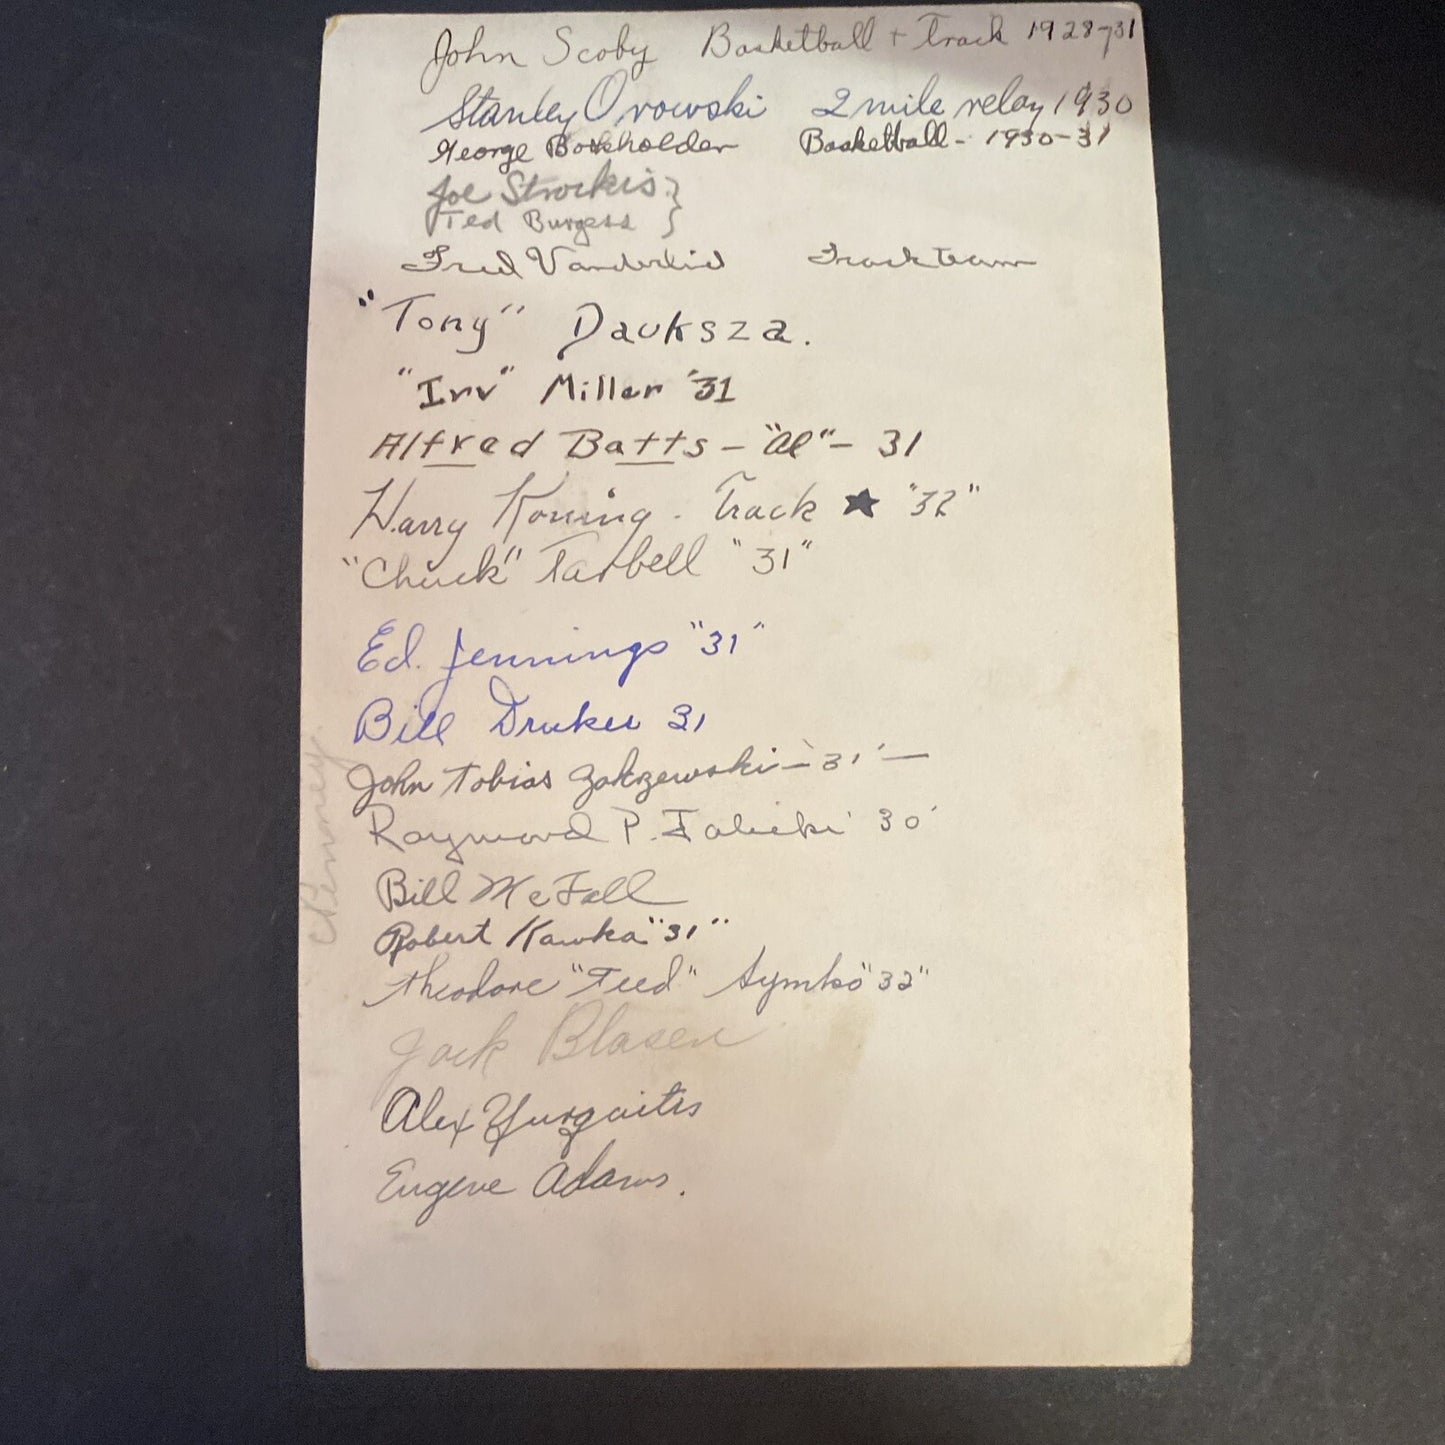 John Scoby Basketball + Track 1928-31
Stanley Orowski 2 mile relay 1930
George Bokeholder Basketball - 1930-31
Joe Strockis }
Ted Burgess }
Fred Vanderlid Track team
"Tony" Dauksza.
"Irv" Miller '31
Alfred Batts - "Al" - 31
Harry Koning - Track ★ "32"
"Chuck" Tarbell "31"
Ed. Jennings "31"
Bill Druker 31
John Tobias Zakrzewski - 31' -
Raymond P. Jalicki 30'
Bill McFall
Robert Kawka "31"
Theodore "Teed" Symko "32"
Jack Blasen
Alex Yurgaitis
Eugene Adams.